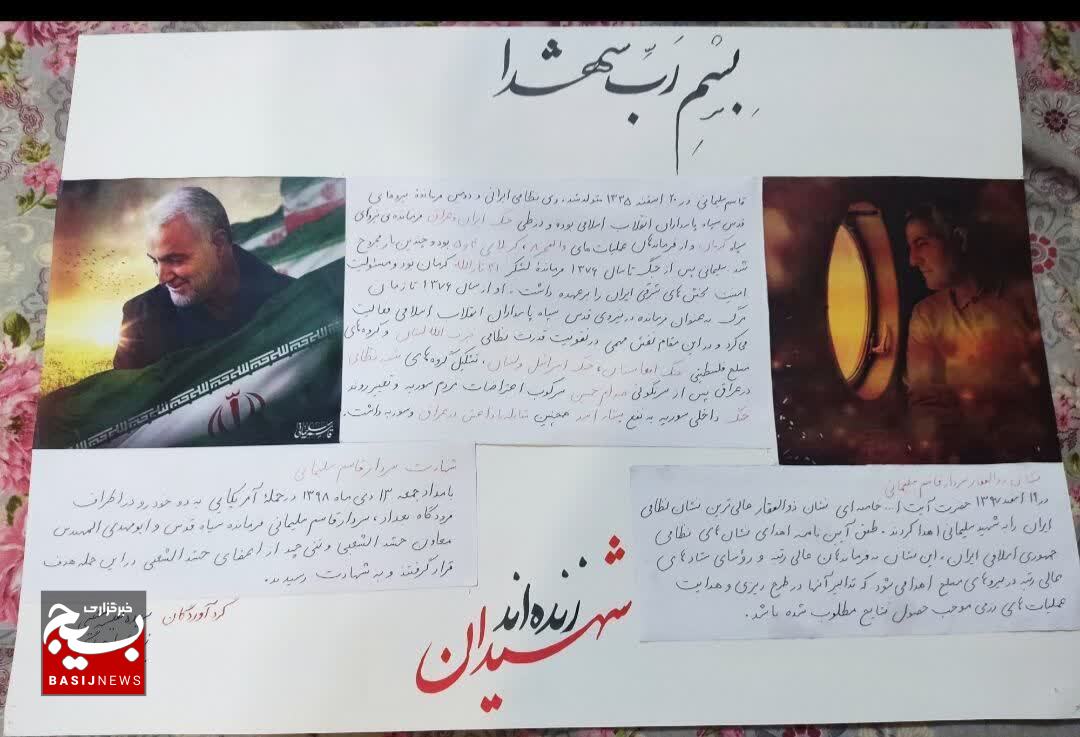 بِسْمِ رَبِّ شهدا
قاسم سلیمانی در ۲۰ اسفند ۱۳۳۵ متولد شد، وی نظامی ایرانی و دومین فرماندهٔ نیروهای
قدس سپاه پاسداران انقلاب اسلامی بوده و در طی جنگ ایران و عراق فرمانده‌ی نیروی
سپاه کرمان و از فرماندهان عملیات های والفجر ۸، کربلای ۴ و ۵ بود و چندین بار مجروح
شد. سلیمانی پس از جنگ تا سال ۱۳۷۶ فرماندهٔ لشکر ۴۱ ثارالله کرمان بود و مسئولیت
امنیت بخش های شرقی ایران را برعهده داشت. او از سال ۱۳۷۶ تا زمان
مرگ به‌عنوان فرمانده در نیروی قدس سپاه پاسداران انقلاب اسلامی فعالیت
می‌کرد و در این مقام نقش مهمی در تقویت قدرت نظامی حزب الله لبنان و گروه‌های
مسلح فلسطینی جنگ افغانستان، جنگ اسرائیل و لبنان، تشکیل گروه‌های شبه نظامی
در عراق پس از سرنگونی صدام حسین سرکوب اعتراضات مردم سوریه و تغییر روند
جنگ داخلی سوریه به نفع بشار اسد همچنین مقابله با داعش در عراق و سوریه داشت.
قاسم سلیمانی
شهادت سردار قاسم سلیمانی
بامداد جمعه ۱۳ دی ماه ۱۳۹۸ در حملهٔ آمریکایی به دو خودرو در اطراف
فرودگاه بغداد، سردار قاسم سلیمانی فرمانده سپاه قدس و ابومهدی المهندس
معاون حشد الشعبی و تنی چند از اعضای حشد الشعبی در این حمله هدف
قرار گرفتند و به شهادت رسیدند.
نشان ذوالفقار سردار قاسم سلیمانی
در ۱۹ اسفند ۱۳۹۷ حضرت آیت ا... خامنه ای نشان ذوالفقار عالی ترین نشان نظامی
ایران را به شهید سلیمانی اهدا کردند. طبق آیین نامه اهدای نشان های نظامی
جمهوری اسلامی ایران، این نشان به فرماندهان عالی رتبه و رؤسای ستادهای
عالی رتبه در نیروهای مسلح اهدا می‌شود که تدابیر آنها در طرح ریزی و هدایت
عملیات های رزمی موجب حصول نتایج مطلوب شده باشد.
شهیدان زنده‌اند
گردآورندگان
خبرگزاری
بسیج
BASIJNEWS